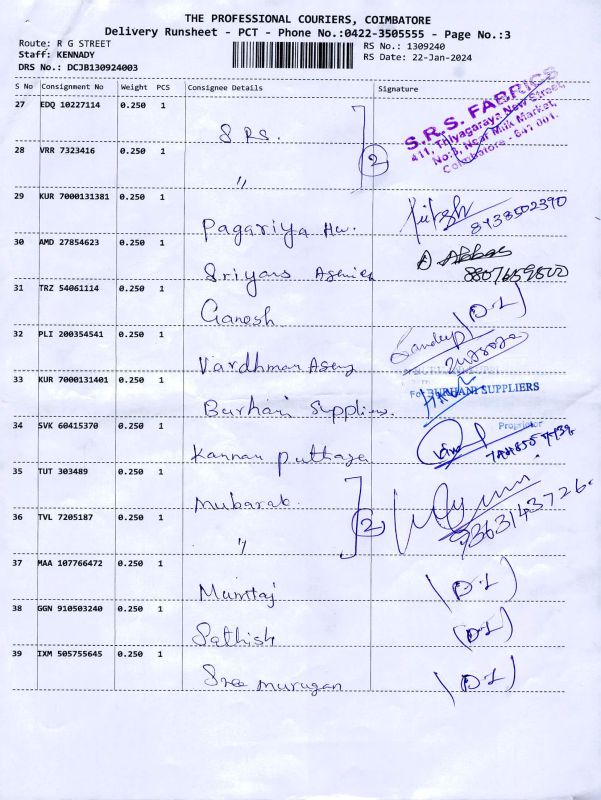 THE PROFESSIONAL COURIERS, COIMBATORE
Delivery Runsheet - PCT - Phone No.:0422-3505555 - Page No.:3
Route: R G STREET
RS No.: 1309240
Staff: KENNADY
RS Date: 22-Jan-2024
DRS No.: DCJB130924003
S No Consignment No Weight PCS Consignee Details Signature
27 EDQ 10227114 0.250 1
S.R.S.
S.R.S. FABRICS
411, Thiyagaraya New Street,
No:9, Near Milk Market,
Coimbatore - 641 001.
2
28 VRR 7323416 0.250 1
"
29 KUR 7000131381 0.250 1
Pagariya Hw.
8438502390
30 AMD 27854623 0.250 1
Sriyans Agencies
D Abbas
31 TRZ 54061114 0.250 1
Ganesh
(D-1)
32 PLI 200354541 0.250 1
Vardhman Agency
Sandeep
33 KUR 7000131401 0.250 1
Burhani Suppliers.
For BURHANI SUPPLIERS
Proprietor
34 SVK 60415370 0.250 1
Kannan Puthaga
35 TUT 303489 0.250 1
Mubarak.
2
9363143726.
36 TVL 7205187 0.250 1
"
37 MAA 107766472 0.250 1
Mumtaj
(D-1)
38 GGN 910503240 0.250 1
Sathish
(D-1)
39 IXM 505755645 0.250 1
Sree Murugan
(D-1)